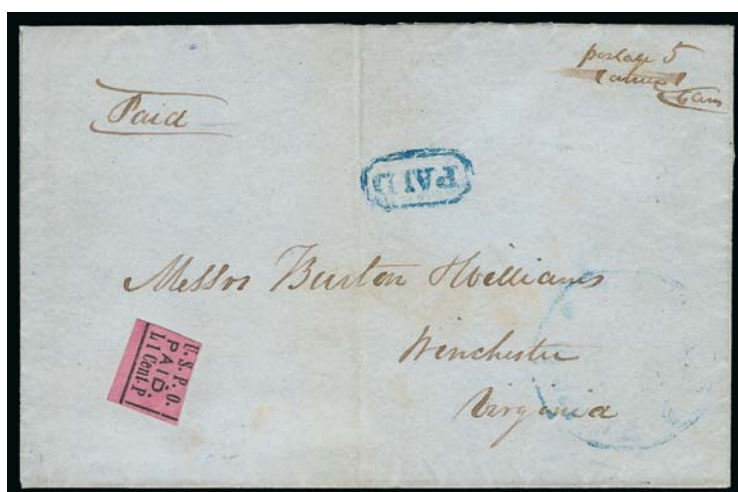 postage 5
Paid
PAID
Messrs Burton Williams
Winchester
Virginia
U.S.P.O.
PAID.
L 1 Cent. P.